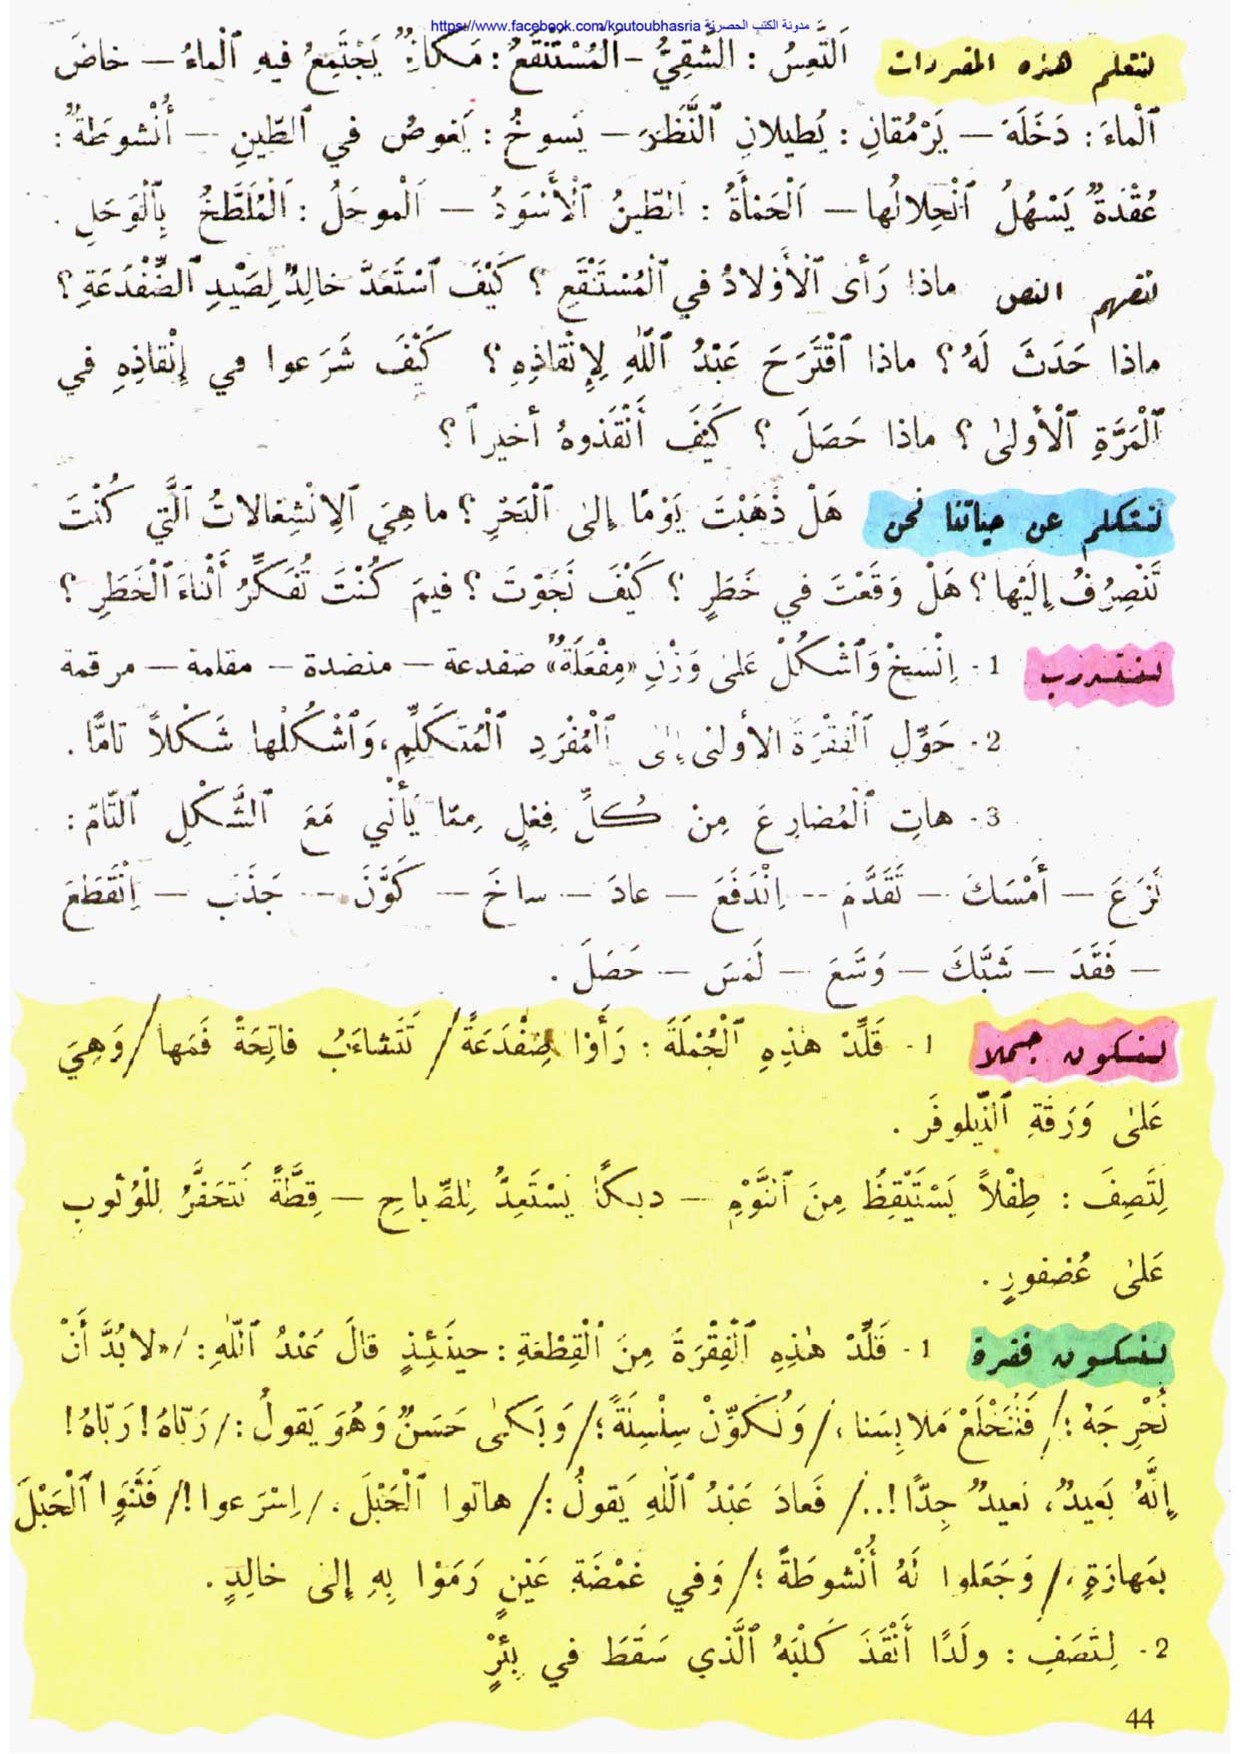 https://www.facebook.com/koutoubhasria مدونة الكتب الحصرية
لنتعلم هذه المفردات اَلتَّعِسُ : الشَّقِيُّ – المُسْتَنْقَعُ : مَكانٌ يَجْتَمِعُ فيهِ ٱلْماءُ – خاضَ
ٱلْماءَ : دَخَلَهُ – يَرْمُقانِ : يُطيلانِ ٱلنَّظَرَ – يَسوخُ : يَغوصُ في ٱلطّينِ – أُنْشوطَةٌ :
عُقْدَةٌ يَسْهُلُ ٱنْحِلالُها – اَلْحَمْأَةُ : اَلطّينُ ٱلْأَسْوَدُ – اَلْموحَلُ : اَلْمُلَطَّخُ بِٱلْوَحَلِ .
لنفهم النص ماذا رَأى ٱلْأَوْلادُ في ٱلْمُسْتَنْقَعِ ؟ كَيْفَ ٱسْتَعَدَّ خالِدٌ لِصَيْدِ ٱلضِّفْدَعَةِ ؟
ماذا حَدَثَ لَهُ ؟ ماذا ٱقْتَرَحَ عَبْدُ ٱللّٰهِ لِإِنْقاذِهِ ؟ كَيْفَ شَرَعوا في إِنْقاذِهِ في
ٱلْمَرَّةِ ٱلْأولىٰ ؟ ماذا حَصَلَ ؟ كَيْفَ أَنْقَذوهُ أخيراً ؟
لنتكلم عن حياتنا نحن هَلْ ذَهَبْتَ يَوْمًا إِلىٰ ٱلْبَحْرِ ؟ ما هِيَ ٱلِانْشِغالاتُ ٱلَّتي كُنْتَ
تَنْصِرُفُ إِلَيْها ؟ هَلْ وَقَعْتَ في خَطَرٍ ؟ كَيْفَ نَجَوْتَ ؟ فيمَ كُنْتَ تُفَكِّرُ أَثْناءَ ٱلْخَطَرِ ؟
لنتدرب 1 - اِنْسَخْ وَٱشْكُلْ عَلىٰ وَزْنِ «مِفْعَلَةٌ» ضفدعة – منضدة – مقلمة – مرقمة
2 - حَوِّلِ ٱلْفِقْرَةَ الأولىٰ إِلىٰ ٱلْمُفْرَدِ ٱلْمُتَكَلِّمِ، وَٱشْكُلْها شَكْلاً تامًّا .
3 - هاتِ ٱلْمُضارِعَ مِنْ كُلِّ فِعْلٍ مِمّا يَأْتي مَعَ ٱلشَّكْلِ ٱلتّامّ :
نَزَعَ – أَمْسَكَ – تَقَدَّمَ – اِنْدَفَعَ – عادَ – ساخَ – كَوَّنَ – جَذَبَ – اِنْقَطَعَ
– فَقَدَ – شَبَّكَ – وَسَّعَ – لَمَسَ – حَصَلَ .
لنكون جملا 1 - قَلِّدْ هٰذِهِ ٱلْجُمْلَةَ : رَأَوْا ضِفْدَعَةً / تَتَثاءَبُ فاتِحَةً فَمَها / وَهِيَ
عَلىٰ وَرَقَةِ ٱلنّيلوفَرِ .
لِتَصِفَ : طِفْلاً يَسْتَيْقِظُ مِنَ ٱلنَّوْمِ – ديكًا يَسْتَعِدُّ لِلصِّياحِ – قِطَّةً تَتَحَفَّزُ لِلْوُثوبِ
عَلىٰ عُصْفورٍ .
لنكون فقرة 1 - قَلِّدْ هٰذِهِ ٱلْفِقْرَةَ مِنَ ٱلْقِطْعَةِ : حينَئِذٍ قالَ عَبْدُ ٱللّٰهِ : / «لا بُدَّ أَنْ
نُخْرِجَهُ ؛ / فَلْنَخْلَعْ مَلابِسَنا ، / وَنُكَوِّنْ سِلْسِلَةً ؛ / وَبَكىٰ حَسَنٌ وَهُوَ يَقولُ : / رَبّاهُ ! رَبّاهُ !
إِنَّهُ بَعيدٌ، بَعيدٌ جِدًّا !.. / فَعادَ عَبْدُ ٱللّٰهِ يَقولُ : / هاتوا ٱلْحَبْلَ . / اِسْرَعوا ! / فَثَنَوا ٱلْحَبْلَ
بِمَهارَةٍ ، / وَجَعَلوا لَهُ أُنْشوطَةً ؛ / وَفي غَمْضَةِ عَيْنٍ رَمَوْا بِهِ إِلىٰ خالِدٍ .
2 - لِتَصِفَ : ولَدًا أَنْقَذَ كَلْبَهُ ٱلَّذي سَقَطَ في بِئْرٍ
44